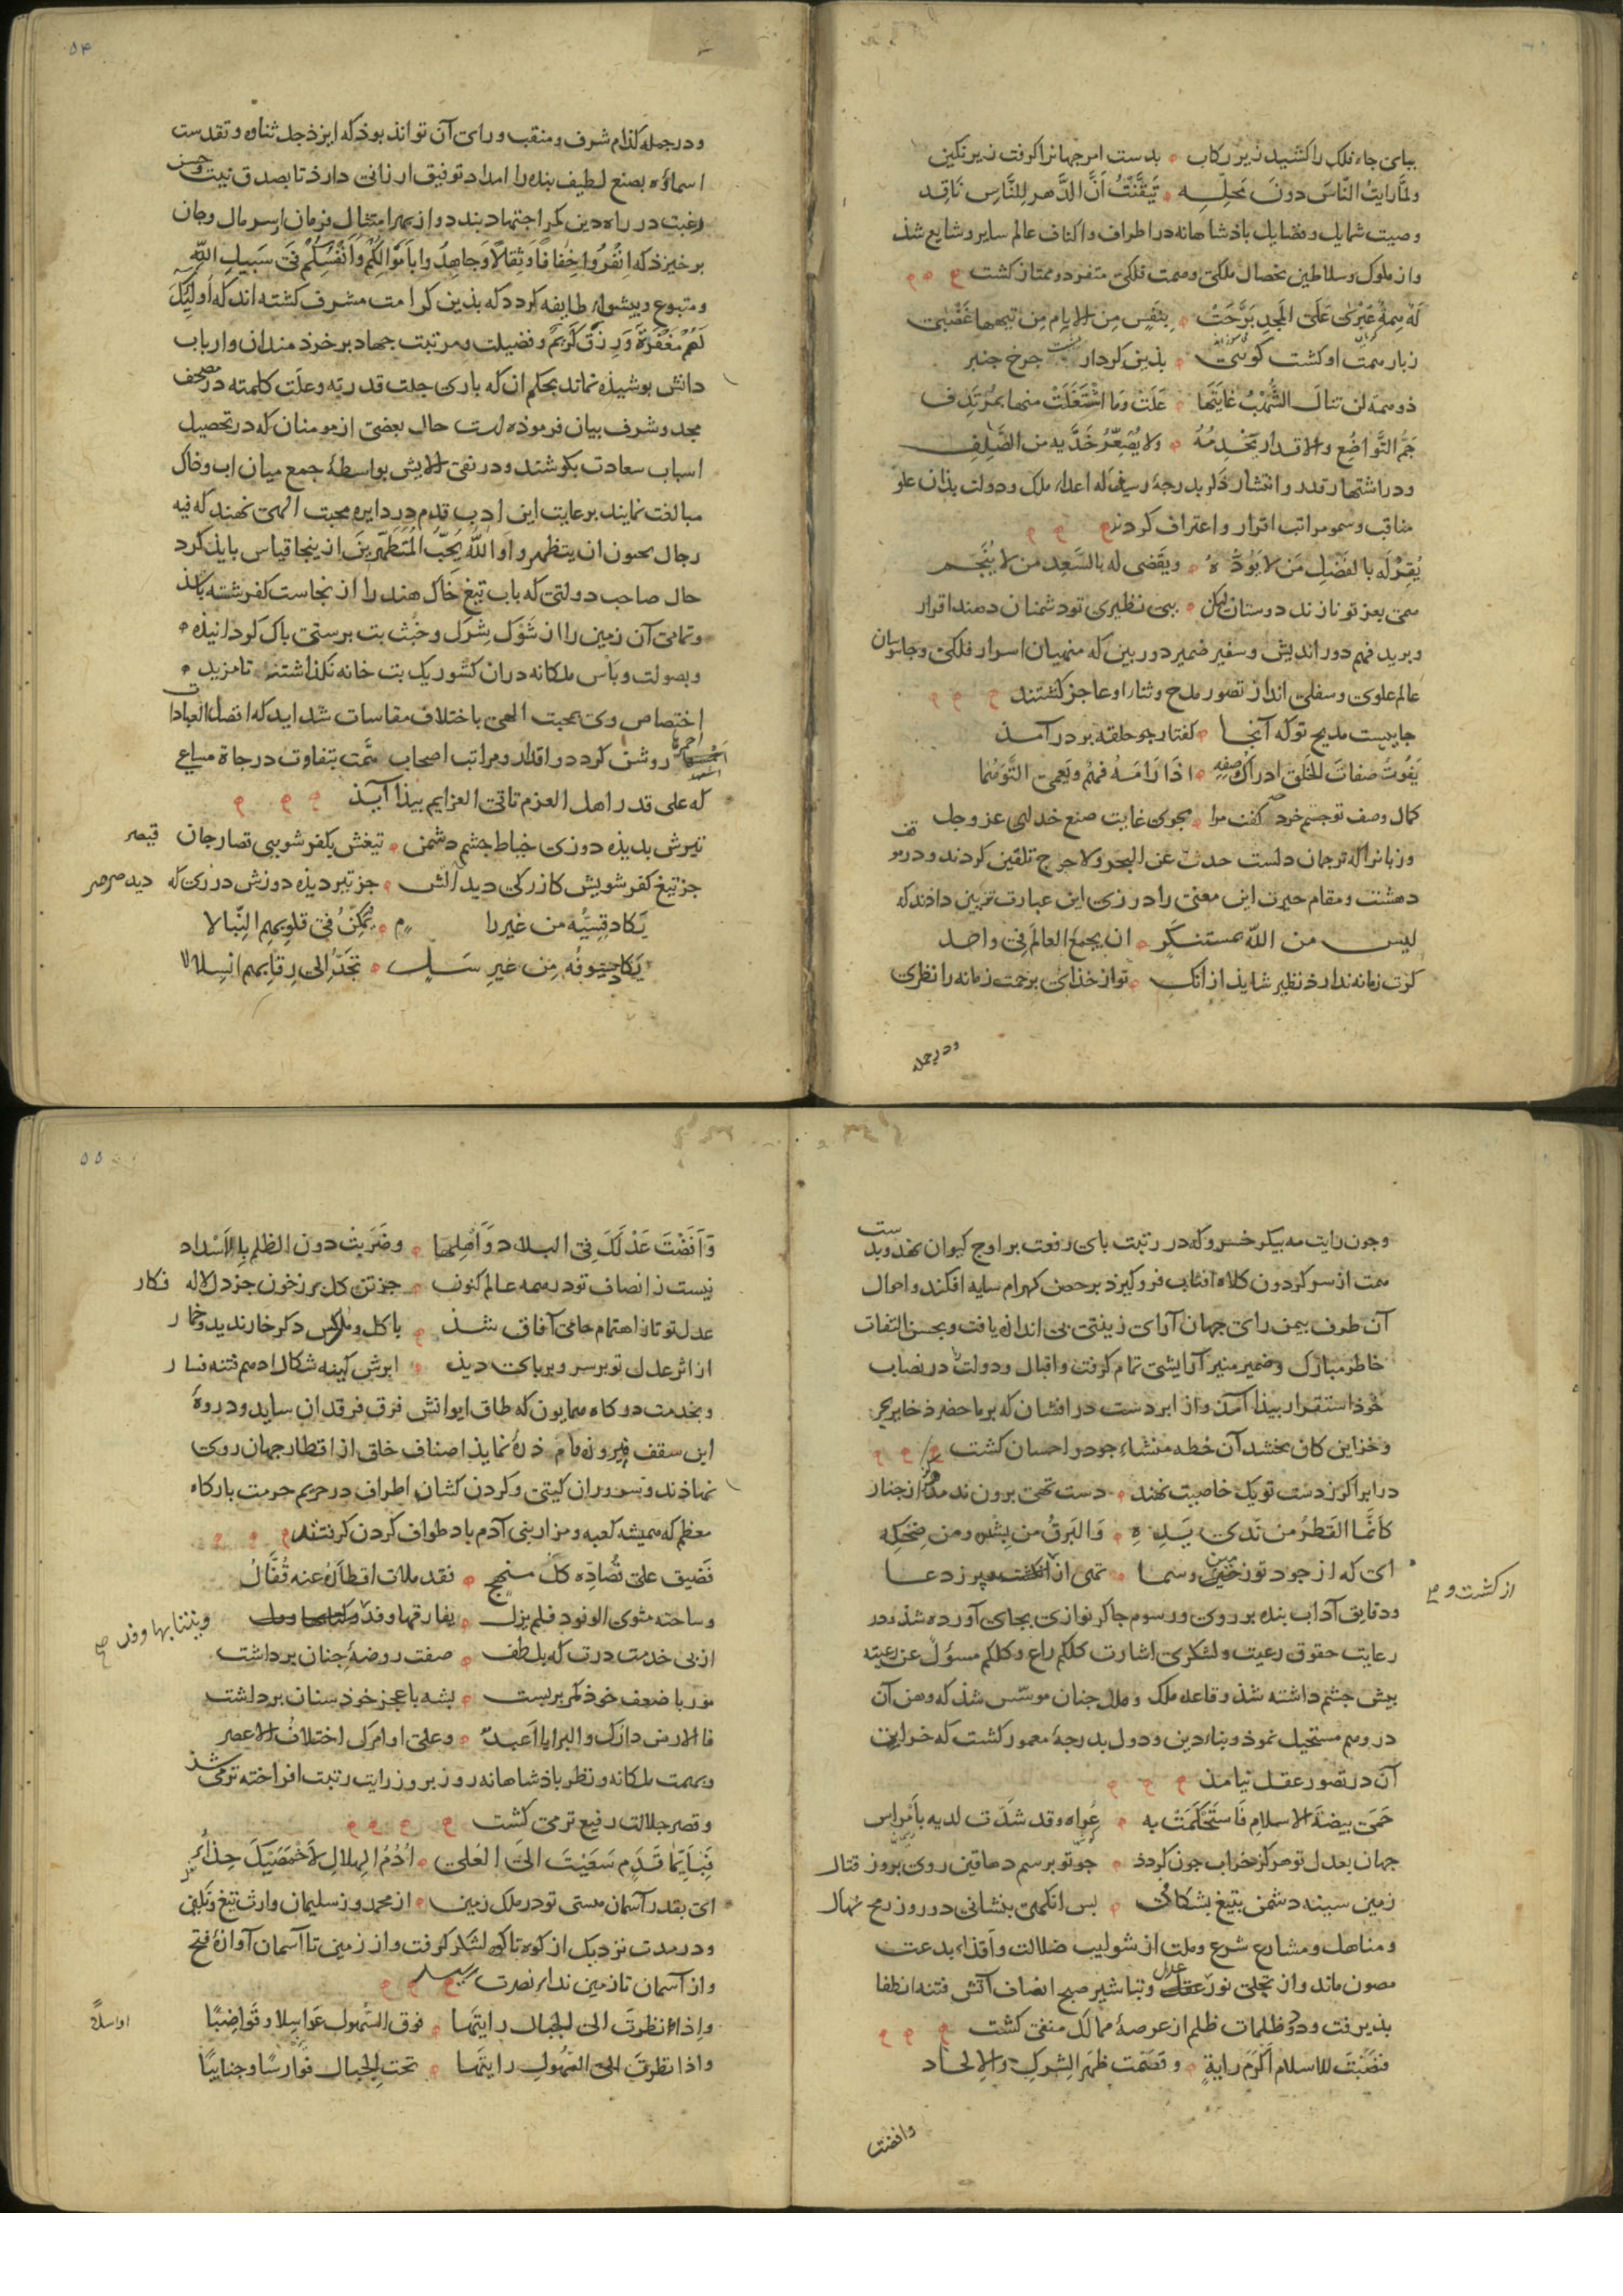 ببای جاه فلک را کشید زیر رکاب بدست امر جهانرا گرفت زیر نکین
ولمّا رایت النّاس دون محلّه تیقّنتُ اَنّ الدّهر للنّاس ناقد
وصیت شمایل و فضایل باذشاهانه در اطراف و اکناف عالم سایر و شایع شذ
واز ملوک و سلاطین بخصال ملکی و همت فلکی متفرد و ممتاز کشت
زبار همّت او کشت کوئی بذین کردار جرخ جنبر
جمّ التّواضع والاقدار تخدمهُ ولا یصعّر خدّیه من الصّلف
ودر اشتهار قدر و انتشار ذکر بدرجهٔ رسید که اعداء ملک و دولت بذان علوّ
مناقب و سمو مراتب اقرار و اعتراف کردند
یُقرّ له بالفضل من لا یودّهُ ویقضی له بالسّعد من لا ینجّم
همی بعز تو نازند دوستان لیکن ببی نظیری تو دشمنان دهند اقرار
وبرید فهم دور اندیش وسفیر ضمیر دوربین که منهیان اسرار فلکی و جاسوسان
عالم علوی و سفلی اند از تصور مدح و ثنا را و عاجز کشتند
جاییست مدیح تو که آنجا کفتار جو حلقه بر در آمذ
یفوت صفات الخلق ادراک وصفه اذا رامه فهم ویعمی التّوهّما
کمال وصف تو جستم خرد کفت مرا بجوی غایت صنع خدای عز وجل
وزبانرا که ترجمان دلست حدث عن البحر ولا حرج تلقین کردند و در موقف
دهشت ومقام حیرت این معنی را در زی این عبارت تزیین داذند که
لیس من اللّه بمستنکر ان یجمع العالم فی واحد
کرت زمانه ندارذ نظیر شایذ از انک تو از خذای برحمت زمانه را نظری
ودرجمله
۵۴
ودرجمله کذام شرف ومنقب ورای آن تواند بوذ که ایزذ جل ثناوه وتقدست
اسماؤه بصنع لطیف بنده را امداد توفیق ارزانی دارذ تا بصدق نیت وحسن
رغبت در راه دین کمر اجتهاد بندد واز بهر امتثال فرمان از سر مال وجان
برخیزذ که انفُروا خفافًا وثقالًا وجاهدُوا باموالکُم وانفُسکُم فی سبیل اللّه
ومتبوع وبیشواء طایفه کردد که بذین کرامت مشرف کشته اند که اولئک
لهُم مغفرةٌ ورزقٌ کریمٌ وفضیلت ومرتبت جهاد بر خرذ مندان وارباب
دانش بوشیده نماند بحکم ان که باری جلت قدرته وعلت کلمته در مصحف
مجد وشرف بیان فرموذه است حال بعضی از مومنان که در تحصیل
اسباب سعادت بکوشند ودر نفی الایش بواسطهٔ جمع میان اب وخاک
مبالغت نمایند برعایت این ادب قدم در دایره محبت الهی نهند که فیه
رجال یحبون ان یتطهروا واللّه یحبّ المُتطهّرین از ینجا قیاس بایذ کرد
حال صاحب دولتی که باب تیغ خاک هند را از نجاست کفر شسته باشذ
وتمامی آن زمین را از شوک شرک وخبث بت برستی باک کردانیذه
وبصولت وباس ملکانه در ان کشور یک بت خانه نکذاشته تا مزید
اختصاص وی بمحبت الهی باختلاف مقاسات شداید که افضل العبادات
احمزها روشن کردد واقدار ومراتب اصحاب همّت بتفاوت درجاة مساعی
که علی قدر اهل العزم تاتی العزایم بیذا آیذ
تیرش بدیذه دوزی خیاط جشم دشمن تیغش بکفر شویی قصار جان قیصر
جز تیغ کفر شویش کازر کی دید آتش جز تیر دیذه دوزش درزی که دید صرصر
یکاد قسیّه من غیر رام یمکن فی قلوبهم النّبالا
یکاد سیوفه من غیر سلّ تجدّ الی رقابهم انسلالا
وجون رایت مه بیکر خسرو که در رتبت بای رفعت بر اوج کیوان نهد وبدست
همت از سر کردون کلاه افتاب فرو کیرذ بر حصن کهرام سایه افکند واحوال
آن طرف بیمن رای جهان آرای زینتی بی اندازه یافت وبحسن التفات
خاطر مبارک وضمیر منیر آرایشی تمام کرفت واقبال ودولت در نصاب
خوذ استقرار بیذا آمذ واز ابر دست در افشان که بر ما حضر ذخایر بحر
وخزاین کان بخشد آن خطه منشاء جود در احسان کشت
در ابر اکر ز دست تو یک خاصیت نهند دست تهی برون ندمد هرکز از جنار
کانّما القطر من ندی یده والبرقُ من بشره ومن ضحکه
ای که از جود تو زمین وسما تهی از کشت وپر ز دعا از کشت و
ودقایق آداب بنده بروری ورسوم جاکر نوازی بجای آورده شذ ودر
رعایت حقوق رعیت ولشکری اشارت کلکم راع وکلکم مسؤل عن رعیته
بیش جشم داشته شذ وقاعده ملک وملل جنان موسّس شذ که وهن آن
در وهم مستحیل نموذ وبناء دین ودول بدرجهٔ معمور کشت که خرابی
آن در تصور عقل نیامذ
حمی بیضة الاسلام فاستحکمت به عُراه وقد شدّت لدیه بامراس
جهان بعدل تو هرکز خراب جون کردد جو تو برسم دهاقین روی بروز قتال
زمین سینه دشمن بتیغ بشکافی بس انکهی بنشانی درو ز رمح نهال
ومناهل ومشارع شرع وملت از شوایب ضلالت واقذاء بدعت
مصون ماند واز تجلی نور عدل وتباشیر صبح انصاف آتش فتنه انطفا
بذیرفت ودوذ ظلمات ظلم از عرصهٔ ممالک منفی کشت
فنصبت للاسلام اکرم رایةٍ وقصمت ظهر الشرک والالحاد
وافضت
۵۵
وافضت عدلک فی البلاد واهلها وضربت دون الظلم بالاسداد
نیست ز انصاف تو در همه عالم کنون جز تن کل بر ز خون جز دل لاله فکار
عدل تو تا ز اهتمام حامی آفاق شذ با کل ونرکس دکر خار ندید وخمار
از اثر عدل تو بر سر وبر بای دید ابرش کیفه شکال ادهم فتنه فسار
وبخدمت درکاه همایون که طاق ایوانش فرق فرقدان ساید ودروهٔ
این سقف فیروزه فام ذرهٔ نمایذ اصناف خلق از اقطار جهان روی
نهاذند وسروران کیتی وکردن کشان اطراف در حریم حرمت بارکاه
معظم که همیشه کعبه ومزار بنی آدم باد طواف کردن کرفتند
فضیق علی قُصّاده کلّ منهج فقد ملات اقطاره عنه قُفّال
وساحته مثوی الوفود فلم یزل یفارقها وفد وینتابها وفد
از بی خدمت درت که بلطف صفت روضهٔ جنان برداشت
مور با ضعف خوذ کمر بربست بشه با عجز خوذ سنان برداشت
فالارض دارک والبرایا اعبدٌ وعلی اوامرک اختلاف الاعصر
وبهمت ملکانه ونظر باذشاهانه روز بروز رایت رتبت افراخته تر می شذ
وقصر جلالت رفیع تر می کشت
فبایّما قدم سعیت الی العُلی اُدُمُ الهلال لاخمصیک حذاء
ای بقدر آسمان هستی تو در ملک زمین از محمد وز سلیمان وارث تیغ ونکین
ودر مدت نزدیک از کوه تا کوه لشکر کرفت واز زمین تا آسمان آوازهٔ فتح
واز آسمان تا زمین نداء نصرت رسید
واذا نظرت الی الجبال رایتها فوق السّهول عواسلا وقواضبًا
واذا نظرت الی السّهول رایتها تحت الجبال فوارسًا وجنایبًا